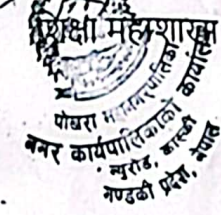 शिक्षा महाशाखा
पोखरा महानगरपालिका
नगर कार्यपालिकाको कार्यालय
न्युरोड, कास्की
गण्डकी प्रदेश, नेपाल